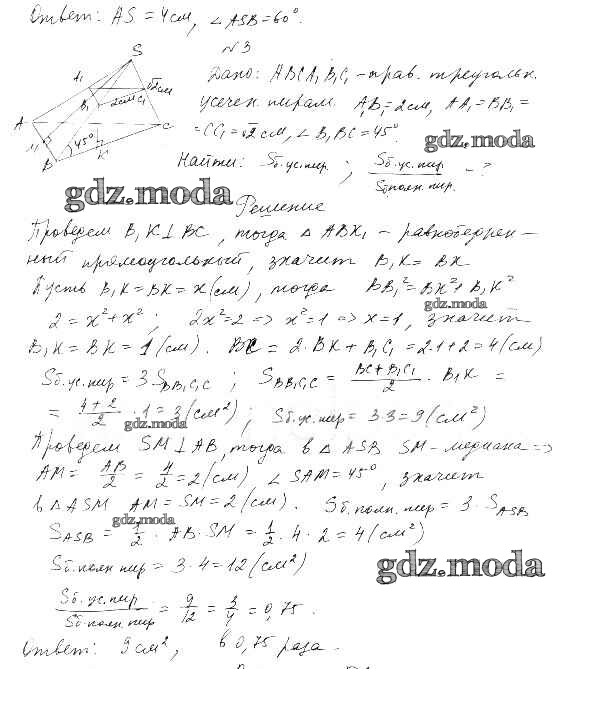 Ответ: AS = 4 см, ∠ASB = 60°.
N 3
Дано: ABCA₁B₁C₁ - прав. треугольн.
усечен. пирам. A₁B₁ = 2 см, AA₁ = BB₁ =
= CC₁ = √2 см, ∠B₁BC = 45°
gdz.moda
Найти: Sб.ус.пир. ; Sб.ус.пир / Sб.полн.пир. - ?
gdz.moda
Решение
Проведем B₁K ⊥ BC, тогда △ ABX₁ - равнобедрен-
ный прямоугольный, значит B₁K = BK
Пусть B₁K = BK = x (см), тогда BB₁² = BK² + B₁K²
gdz.moda
2 = x² + x² ; 2x² = 2 => x² = 1 => x = 1, значит
B₁K = BK = 1 (см). BC = 2·BK + B₁C₁ = 2·1+2 = 4 (см)
Sб.ус.пир = 3 S BB₁C₁C ; S BB₁C₁C = (BC + B₁C₁)/2 · B₁K =
= (4+2)/2 · 1 = 3 (см²) ; Sб.ус.пир = 3·3 = 9 (см²)
gdz.moda
Проведем SM ⊥ AB, тогда в △ ASB SM - медиана =>
AM = AB/2 = 4/2 = 2 (см), ∠ SAM = 45°, значит
в △ ASM AM = SM = 2 (см). Sб.полн.пир = 3 · S ASB
gdz.moda
S ASB = 1/2 · AB · SM = 1/2 · 4 · 2 = 4 (см²)
Sб.полн пир = 3·4 = 12 (см²)
gdz.moda
Sб.ус.пир / Sб.полн.пир = 9/12 = 3/4 = 0,75.
Ответ: 9 см², в 0,75 раза.
S
A₁
√2 см
B₁
2 см
C₁
A
C
M
45°
B
K